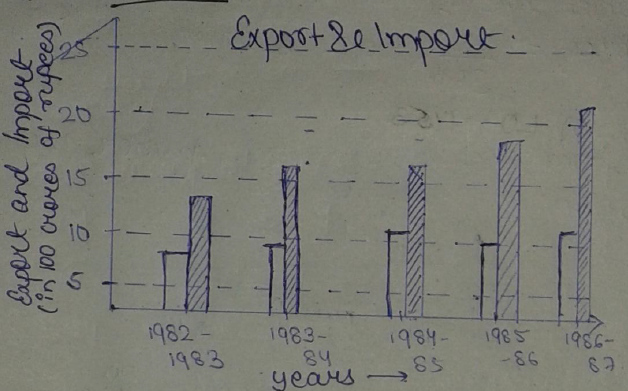 Export & Import.
Export and Import
(in 100 crores of rupees)
25
20
15
10
5
1982-
1983
1983-
84
1984-
85
1985
-86
1986-
87
years →